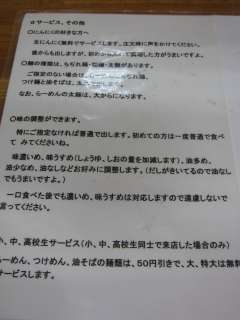 αサービス、その他
〇にんにくの好きな方へ
生にんにく無料でサービスします。注文時に声をかけてください。
後からも出しますが、初めから入れて調理した方がうまいですよ。
〇麺の種類は、ちぢれ麺・
ご指定のない場合は、
つけ麺と油そばは、太
なお、らーめんの太麺は、大からになります。
〇味の調整ができます。
特にご指定なければ普通で出します。初めての方は一度普通で食べ
て みてくださいね。
味濃いめ、味うすめ(しょうゆ、しおの量を加減します)、油多め、
油少なめ、油なしなどお好みに調整します。(だしがきいてるので油なし
でもうまいですよ。)
一口食べた後でも濃いめ、味うすめは対応しますので遠慮しないで
言ってください。
小、中、高校生サービス(小、中、高校生同士で来店した場合のみ)
らーめん、つけめん、油そばの麺類は、50円引きで、大、特大は無料
サービスします。